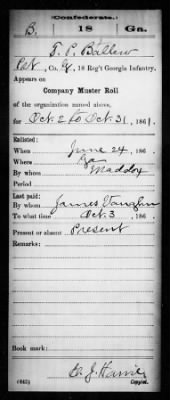 Confederate.
B. 18 Ga.
T. P. Ballew
Pvt, Co. G, 18 Reg't Georgia Infantry.
Appears on
Company Muster Roll
of the organization named above,
for Oct. 2 to Oct 31, 1861.
Enlisted:
When June 24, 186
Where Ga
By whom Maddox
Period
Last paid:
By whom James Vaughn
To what time Oct. 3, 186
Present or absent Present
Remarks:
Book mark:
(642)
Copyist.